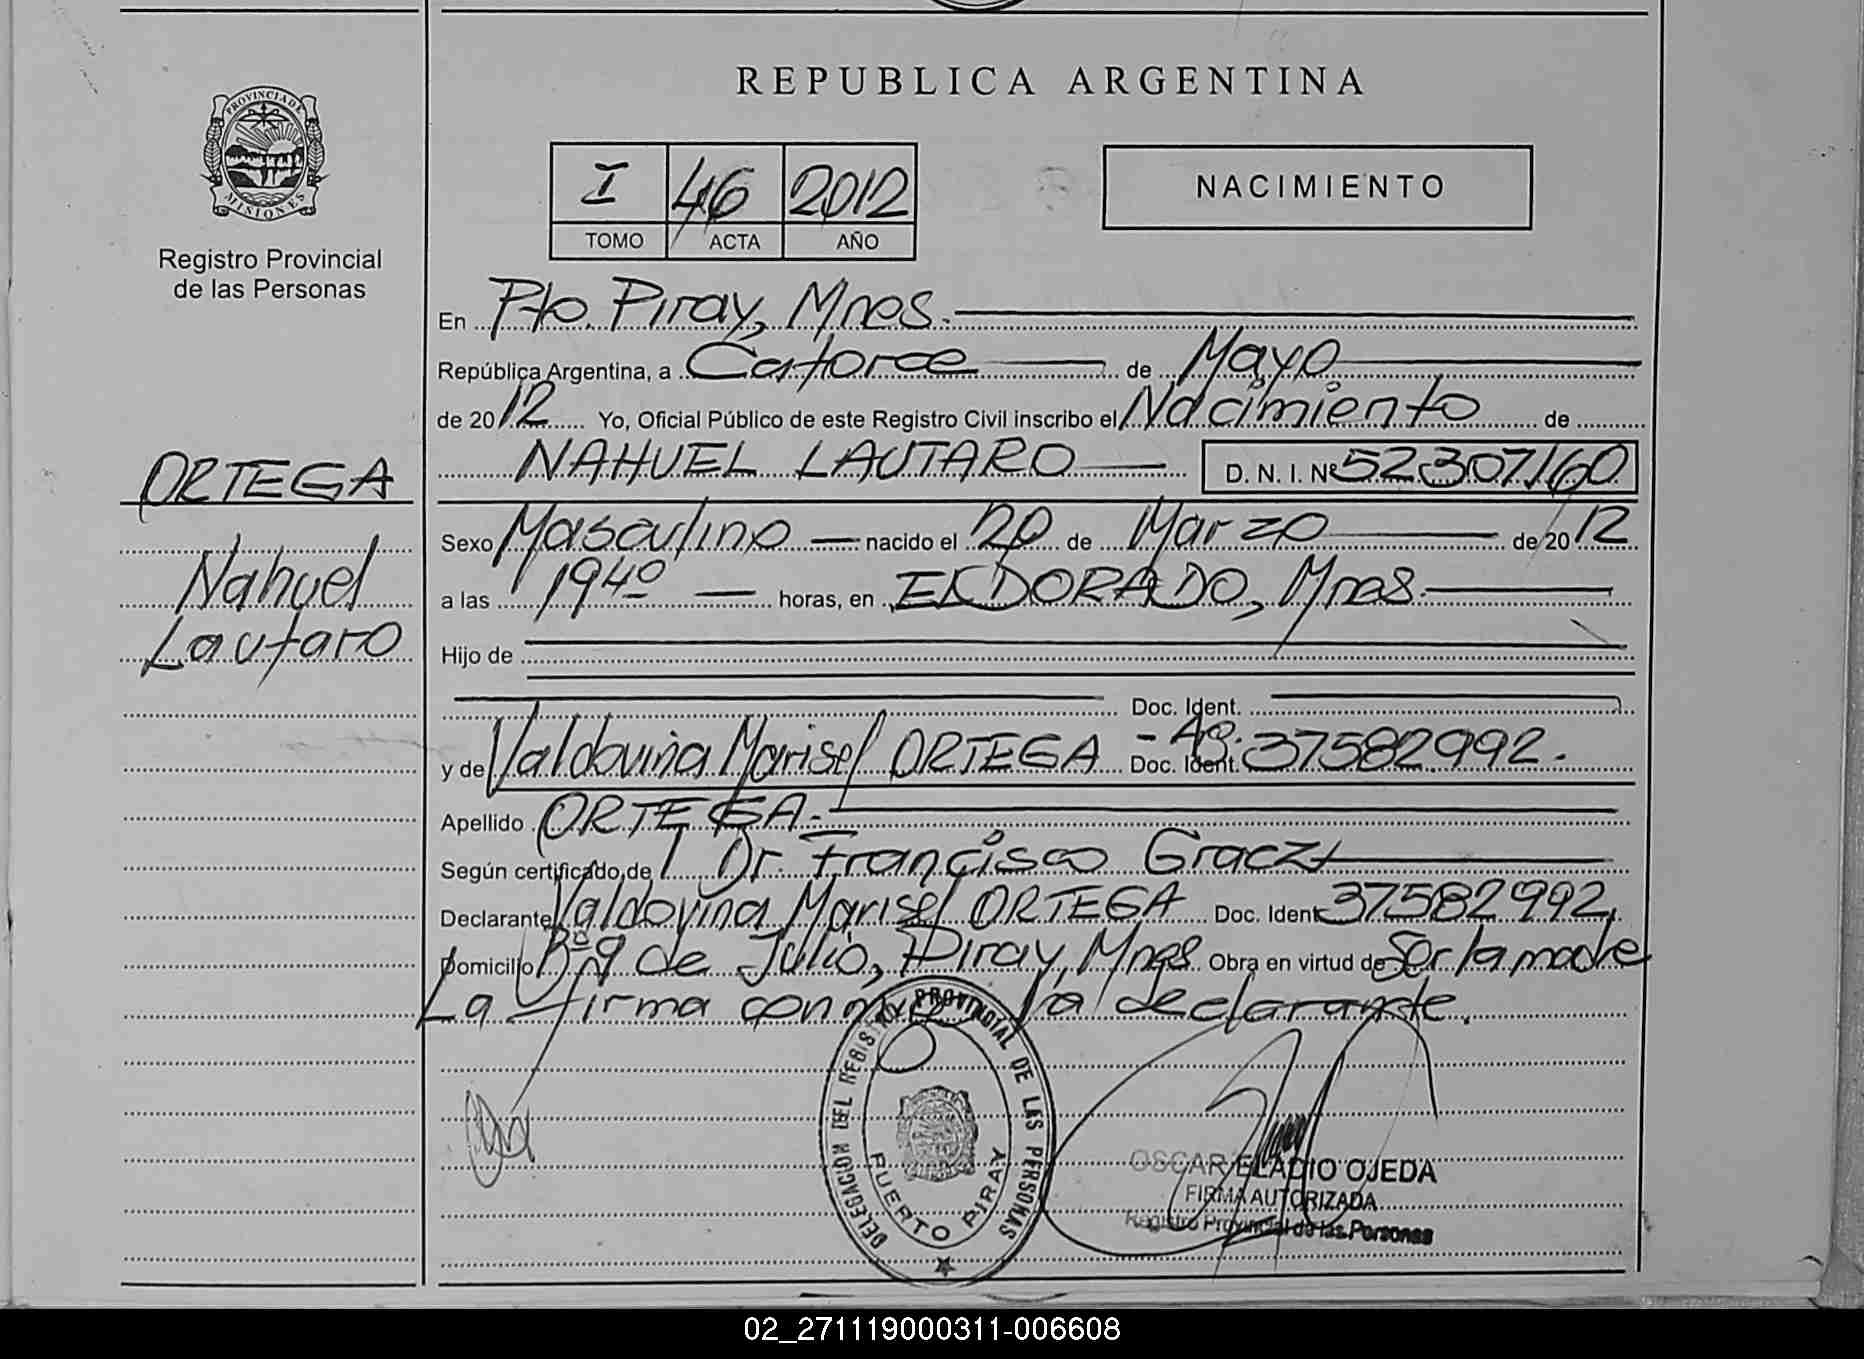 REPUBLICA ARGENTINA
PROVINCIA DE
MISIONES
Registro Provincial
de las Personas
I 46 2012
TOMO ACTA AÑO
NACIMIENTO
En Pto. Piray, Mnes.
República Argentina, a Catorce de Mayo
de 2012 Yo, Oficial Público de este Registro Civil inscribo el Nacimiento de
NAHUEL LAUTARO D. N. I. Nº 52307160
ORTEGA
Nahuel
Lautaro
Sexo Masculino nacido el 20 de Marzo de 2012
a las 19 40 horas, en ELDORADO, Mnes.
Hijo de
Doc. Ident.
y de Valdovina Marisel ORTEGA - Doc. Ident. 37582992.
Apellido ORTEGA.-
Según certificado de Dr. Francisco
Declarante Valdovina Marisel ORTEGA Doc. Ident. 37582992,
Domicilio Bº 9 de Julio, Piray, Mnes Obra en virtud de Ser la madre
La firma la declarante.
DELEGACION DEL REGISTRO PROVINCIAL DE LAS PERSONAS
PUERTO PIRAY
OSCAR ELADIO OJEDA
FIRMA AUTORIZADA
Registro Provincial de las Personas
02_271119000311-006608